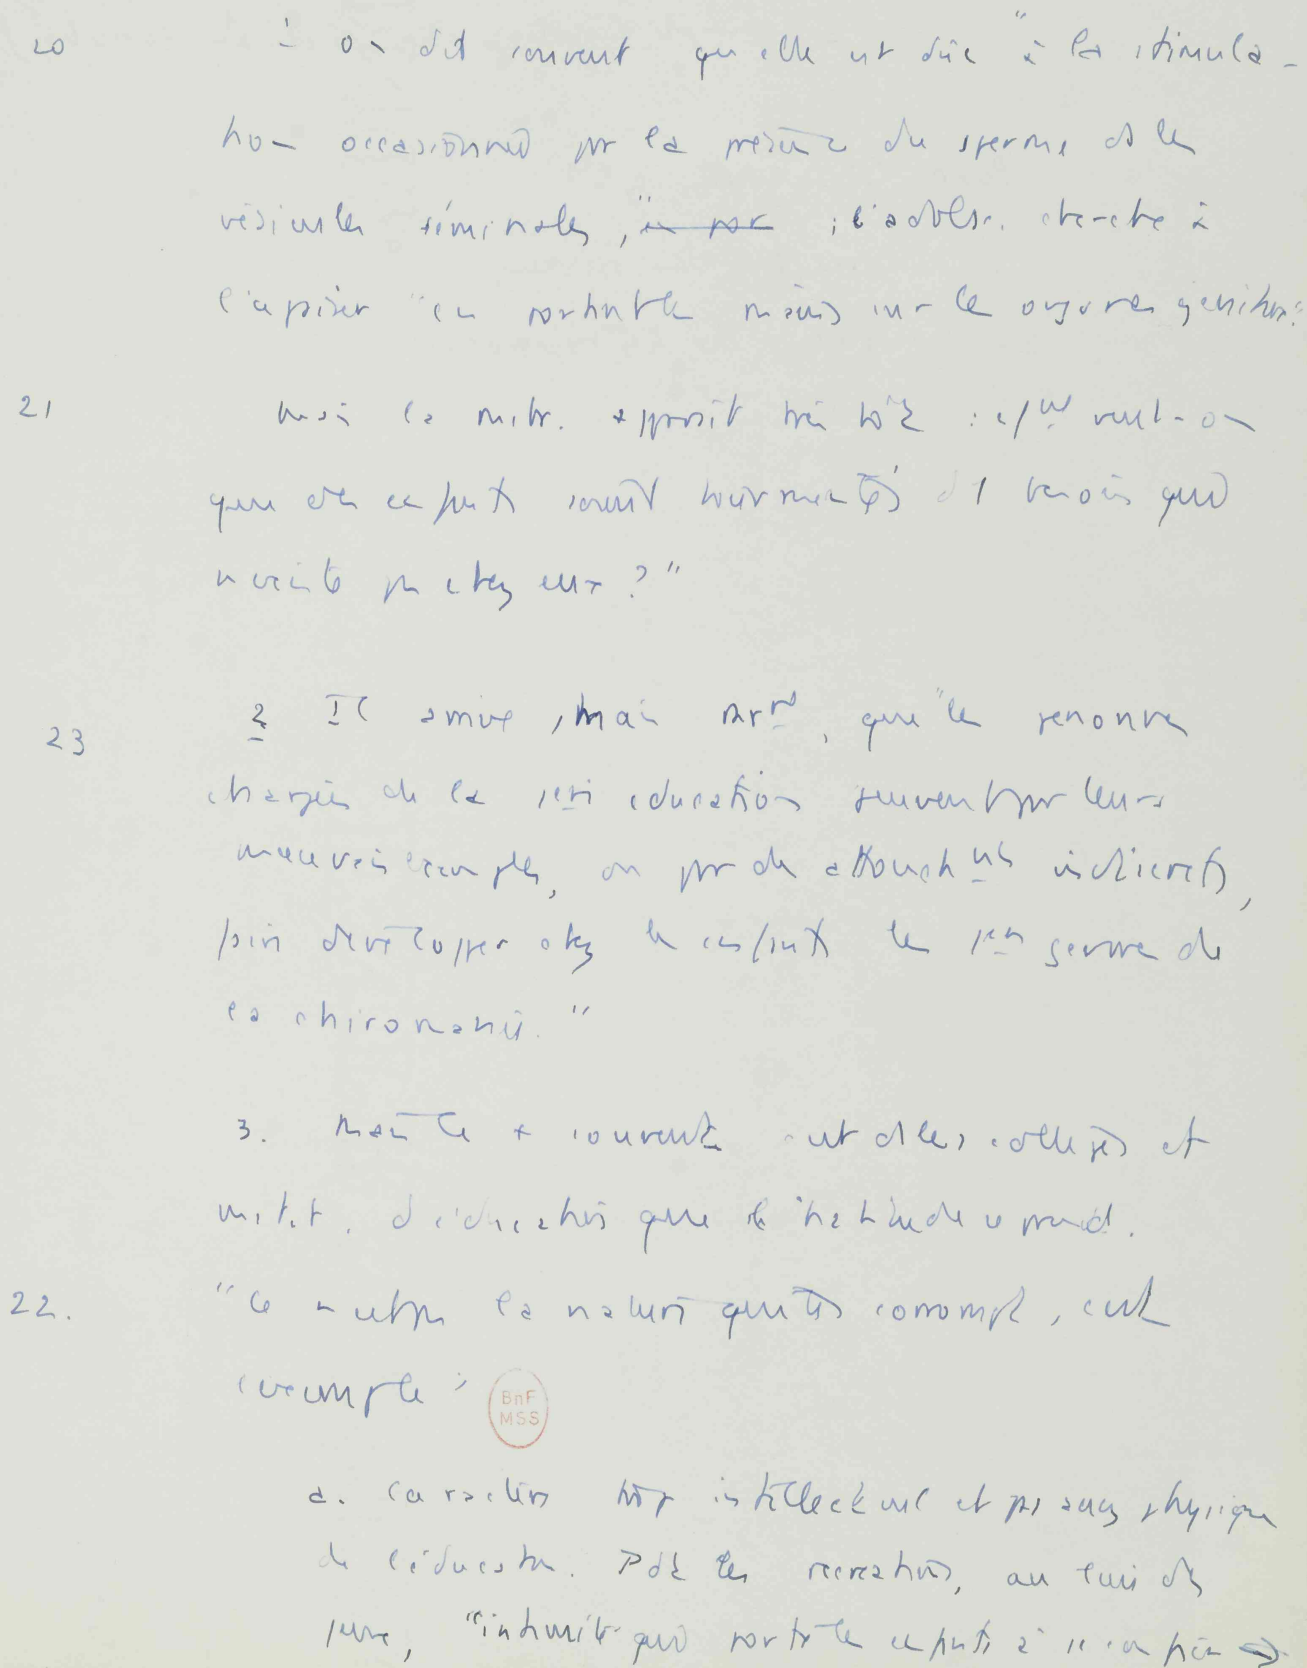 20 1 on dit souvent qu'elle est dûe "à la stimula-
tion occasionnée par la présence du sperme ds les
vésicules séminales," en par ; l'adolsc. cherche à
l'apaiser "en portant les mains sur les organes génitaux".
21 Mais la mstr. apparaît très tôt : "cmt veut-on
que des enfants soient tourmentés d'1 besoin qui
n'existe pas chez eux ?"
23 2 Il arrive, mais rarmt, que "les personnes
chargées de la 1ère éducation peuvent par leurs
mauvais exemples, ou par des attouchmts indiscrets,
faire développer chez les enfants les 1ers germes de
la chiromanie."
3. Mais le + souvent c'est ds les collèges et
instit. d'éducation que l'habitude se prend.
22. "Ce n'est pas la nature qui les corrompt, c'est
l'exemple"
BnF
MSS
a. Caractère trop intellectuel et pas assez physique
de l'éducation. Pdt les récréations, au lieu des
jeux, "intimité qui porte les enfants à se confier →